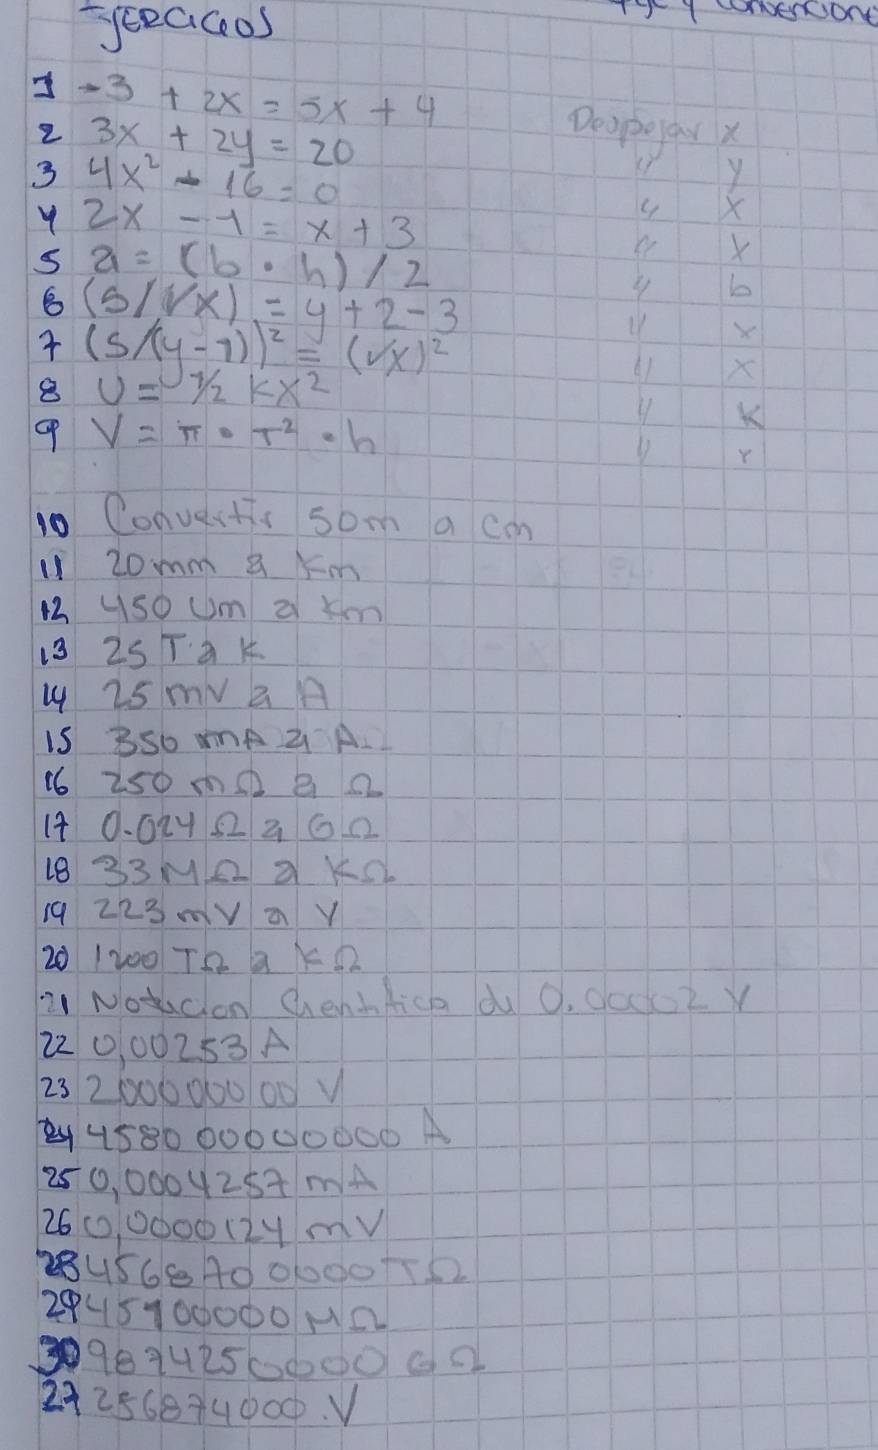 EJERCICIOS
1 -3 + 2x = 5x + 4 Despejar x
2 3x + 2y = 20 " y
3 4x² - 16 = 0 " x
4 2x - 1 = x + 3 " x
5 a = (b • h) / 2 " b
6 (5/√x) = y + 2 - 3 " x
7 (5/(y-1))² = (√x)² " x
8 U = 1/2 kx² " k
9 V = π • r² • h " r
10 Convertir 50m a cm
11 20mm a Km
12 450 um a km
13 25 T a K
14 25 mV a A
15 350 mA a A
16 250 mΩ a Ω
17 0.024 Ω a GΩ
18 33 MΩ a KΩ
19 223 mV a V
20 1200 TΩ a KΩ
21 Notacion Cientifica de 0.00002 V
22 0,00253 A
23 200000000 V
24 458000000000 A
25 0,0004257 mA
26 0,0000124 mV
28 456870 0000 TΩ
29 459100000 MΩ
30 98742500000 GΩ
27 256874000.V